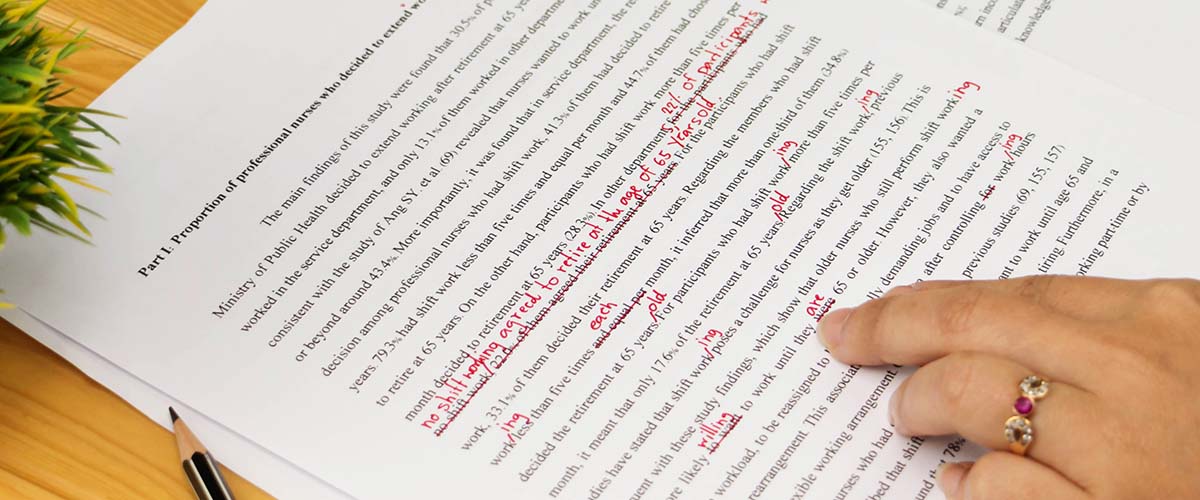 Part I. Proportion of professional nurses who decided to extend
The main findings of this study were found that 30.5% of
Ministry of Public Health decided to extend working after retirement at 65
worked in the service department, and only 13.1% of them worked in other
consistent with the study of Ang SY, et al (69) revealed that nurses wanted to work
or beyond around 43.4%. More importantly, it was found that in service department, the
decision among professional nurses who had shift work, 41.3% of them had decided to retire
years. 79.3% had shift work less than five times and equal per month and 44.7% of them had
to retire at 65 years. On the other hand, participants who had shift work more than five times per
22% of participants
month decided to retirement at 65 years (28.3%). In other department, for the participants who had
no shift working agreed to retire at the age of 65 years old
no shift work, 22% of them agreed their retirement at 65 years. For the participants who had shift
work, 33.1% of them decided their retirement at 65 years. Regarding the members who had shift
ing each old
work less than five times and equal per month, it inferred that more than one-third of them (34.8%)
old ing
decided the retirement at 65 years. For participants who had shift work more than five times per
old ing
month, it meant that only 17.6% of the retirement at 65 years. Regarding the shift work, previous
ing
have stated that shift work poses a challenge for nurses as they get older (155, 156). This is
with these study findings, which show that older nurses who still perform shift working
willing are
likely to want to work until they were 65 or older. However, they also wanted a
workload, to be reassigned to demanding jobs and to have access to
ing
rearrangement. This after controlling for work hours
working arrangement previous studies (69, 155, 157)
who had to work until age 65 and
that shift Furthermore, in a
78% working part-time or by